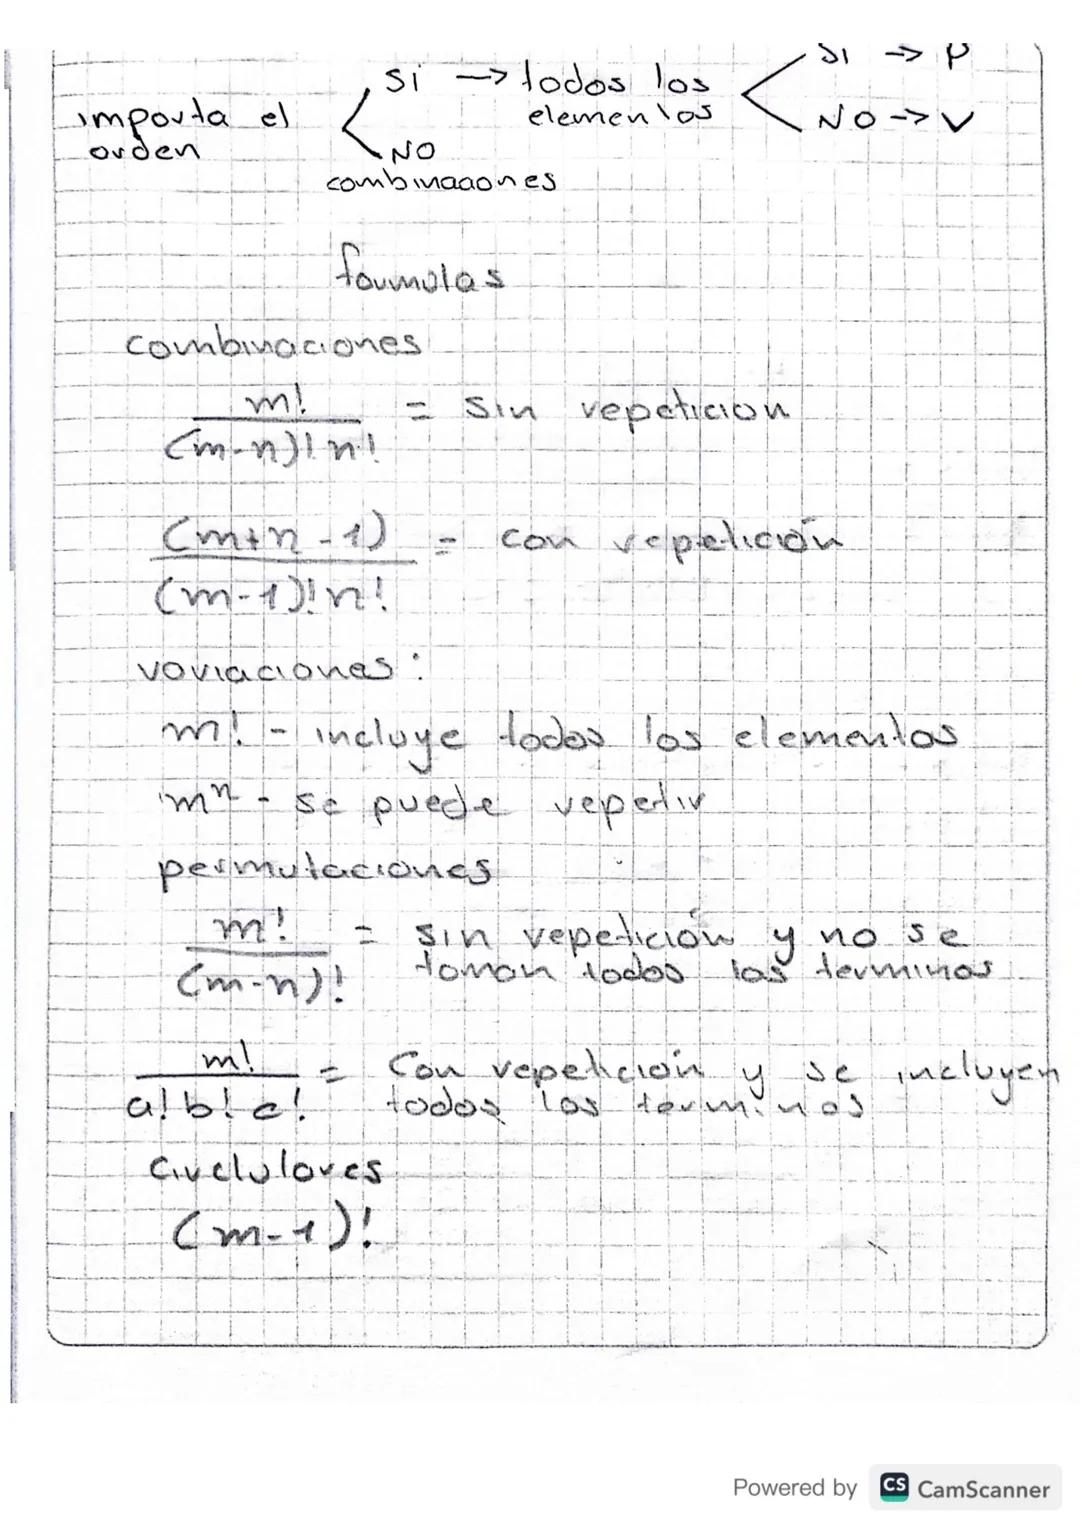 SI → P
si → todos los
importa el elementos NO → V
orden NO
combinaciones
formulas
combinaciones
m! / (m-n)! n! = sin repeticion
(m+n-1) / (m-1)! n! = con repetición
variaciones:
m! - incluye todos los elementos
mⁿ - se puede repetir
permutaciones
m! / (m-n)! = sin repetición y no se
toman todos los terminos
m! / a! b! c! = Con repetición y se incluyen
todos los terminos
Circulares
(m-1)!
Powered by CS CamScanner